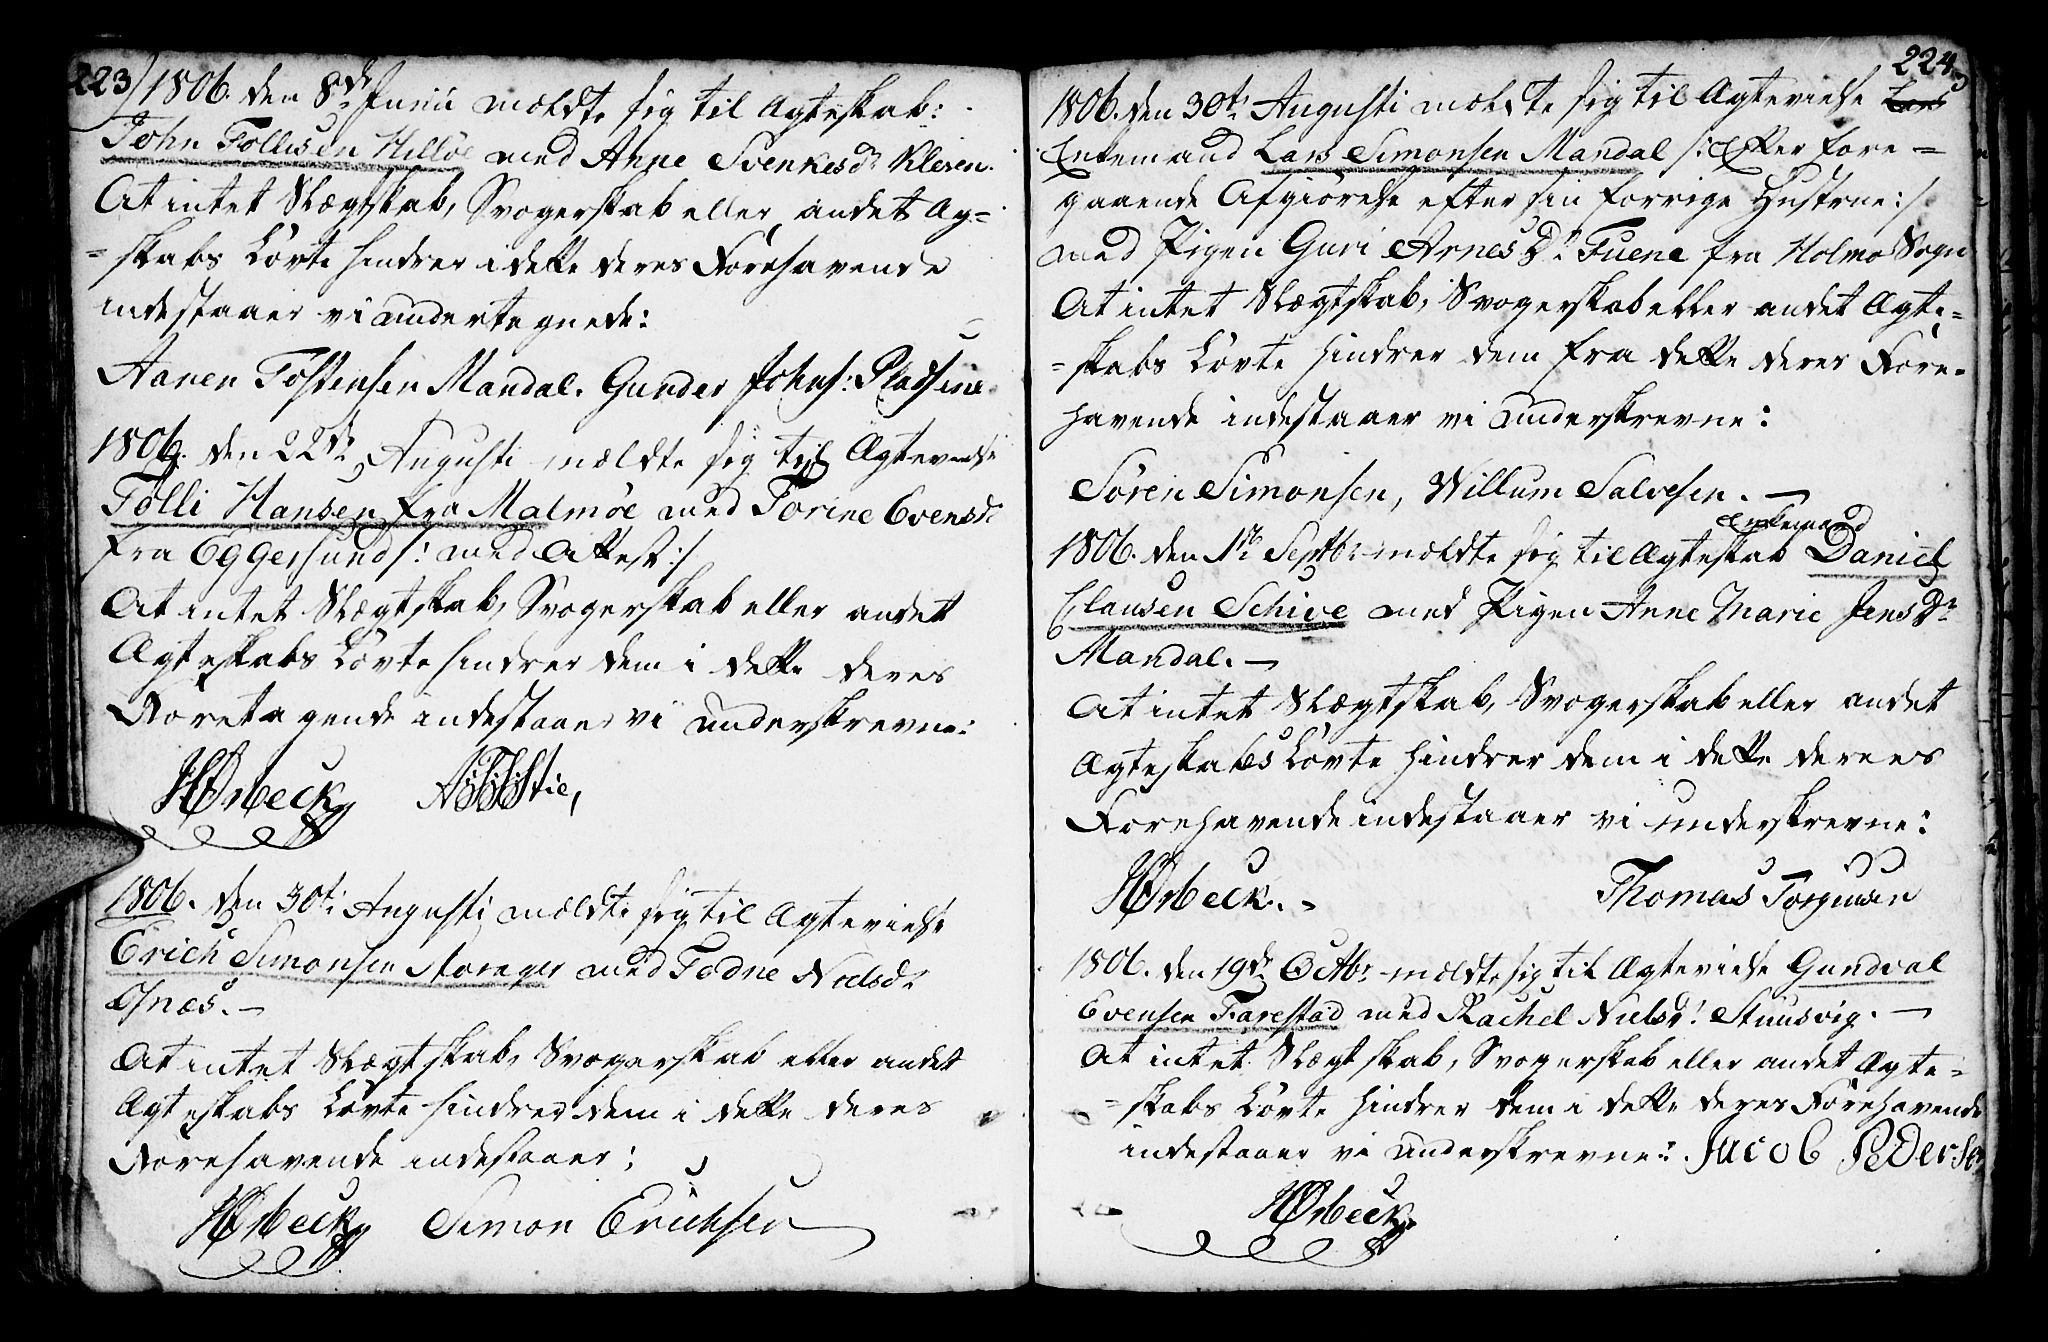 223)
1806. den 8de Junii meldte sig til Ægteskab:
John Tollisen Hilløe med Anne Svenkesdr Kleven.
At intet Slægtskab, Svogerskab eller andet Æg=
=skabs Løvte hindrer i dette deres Forehavende
indestaaer vi undertegnede:
Aanen Tostensen Mandal. Gunder Johns: Pladsene
1806. den 22de Augusti meldte sig til Ægtevielse
Tolli Hansen fra Malmøe med Torine Evensdr
fra Eggersund /: med Attest :/
At intet Slægtskab, Svogerskab eller andet
Ægteskabs Løvte hindrer dem i dette deres
Foretagende indestaaer vi underskrevne:
HØrbeck
1806. den 30te Augusti meldte sig til Ægtevielse
Erich Simonsen Storager med Todne Neelsdr
Isnæs. —
At intet Slægtskab, Svogerskab eller andet
Ægteskabs Løvte hindrer dem i dette deres
Forehavende indestaaer:
HØrbeck Simon Erichsen
224
1806. den 30te Augusti meldte sig til Ægtevielse Lars
Enkemand Lars Simonsen Mandal /: Efter fore=
gaaende Afgiørelse efter sin forrige Hustrue :/
med Pigen Guri Arnes Dr Tuene fra Holme Sogn
At intet Slægtskab, Svogerskab eller andet Ægte=
=skabs Løvte hindrer dem fra dette deres Fore-
havende indestaaer vi underskrevne:
Søren Simonsen, Willum Salvesen. —
Enkemand
1806. den 1te Septbr meldte sig til Ægteskab Daniel
Clausen Schive med Pigen Anne Marie Jens Dr
Mandal. —
At intet Slægtskab, Svogerskab eller andet
Ægteskabs Løvte hindrer dem i dette deres
Forehavende indestaaer vi underskrevne:
HØrbeck. Thomas Torgusen
1806. den 19de Octbr meldte sig til Ægtevielse Gundval
Evensen Farestad med Rachel Nielsdr Stuusvig. —
At intet Slægtskab, Svogerskab eller andet Ægte=
=skabs Løvte hindrer dem i dette deres Forehavende
indestaaer vi underskrevne: Jacob Pedersen
HØrbeck